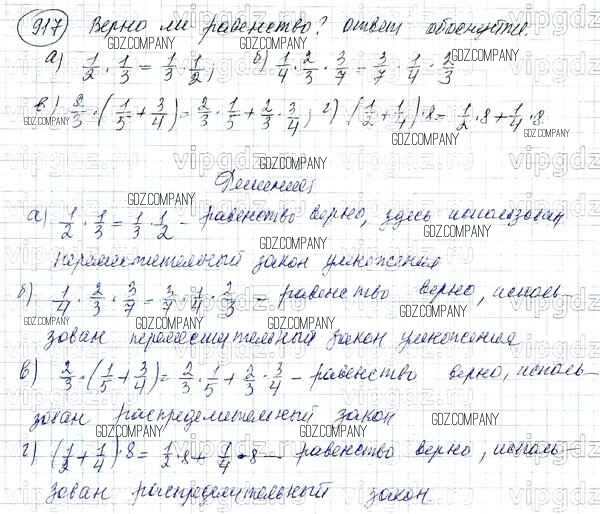 917) Верно ли равенство? Ответ обоснуйте.
а) 1/2 · 1/3 = 1/3 · 1/2; б) 1/4 · 2/3 · 3/7 = 3/7 · 1/4 · 2/3
в) 2/3 · (1/5 + 3/4) = 2/3 · 1/5 + 2/3 · 3/4; г) (1/2 + 1/4) · 8 = 1/2 · 8 + 1/4 · 8.
Решение:
а) 1/2 · 1/3 = 1/3 · 1/2 – равенство верно, здесь использован
переместительный закон умножения
б) 1/4 · 2/3 · 3/7 = 3/7 · 1/4 · 2/3 – равенство верно, исполь-
зован переместительный закон умножения
в) 2/3 · (1/5 + 3/4) = 2/3 · 1/5 + 2/3 · 3/4 – равенство верно, исполь-
зован распределительный закон
г) (1/2 + 1/4) · 8 = 1/2 · 8 + 1/4 · 8 – равенство верно, исполь-
зован распределительный закон
GDZ.COMPANY
vipgdz.ru